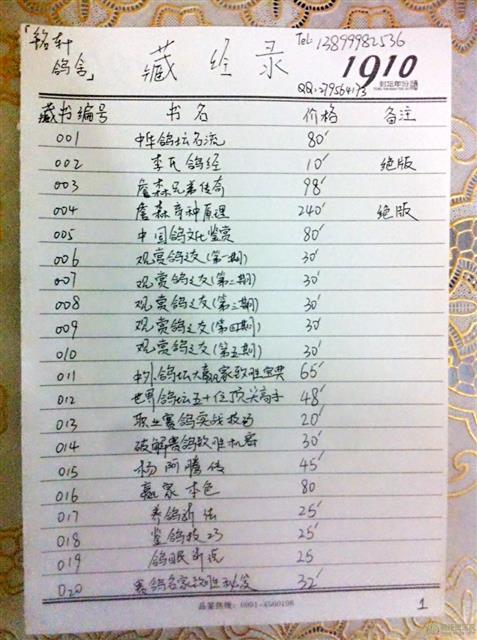 「铭轩鸽舍」 藏经录 Tel: 13899982536
1910
封坛年份酒
QQ:279564173
藏书编号 书名 价格 备注
001 中华鸽坛名流 80
002 李氏鸽经 10 绝版
003 詹森兄弟传奇 98
004 詹森育种原理 240 绝版
005 中国鸽文化鉴赏 80
006 观赏鸽之友(第一期) 30
007 观赏鸽之友(第二期) 30
008 观赏鸽之友(第三期) 30
009 观赏鸽之友(第四期) 30
010 观赏鸽之友(第五期) 30
011 中外鸽坛大赢家致胜宝典 65
012 世界鸽坛五十位顶尖高手 48
013 职业赛鸽实战技巧 20
014 破解赛鸽致胜机密 30
015 杨阿腾传 45
016 赢家本色 80
017 养鸽新法 25
018 鉴鸽技巧 25
019 鸽眼新说 25
020 赛鸽名家致胜秘发 32
品鉴热线：0991-4560198
1